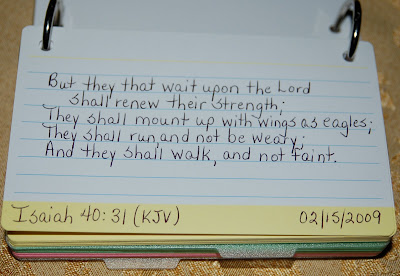 But they that wait upon the Lord
shall renew their strength;
They shall mount up with wings as eagles;
They shall run, and not be weary;
And they shall walk, and not faint.
Isaiah 40:31 (KJV) 02/15/2009